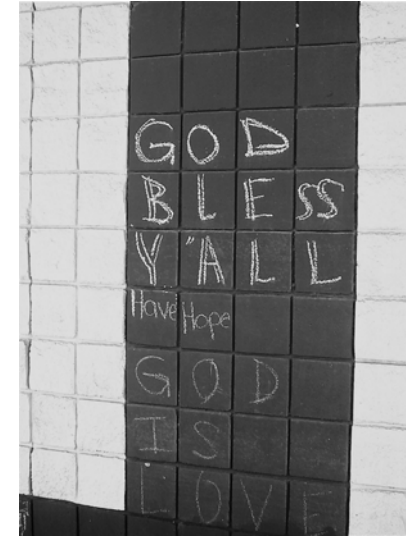 GOD
BLESS
Y"ALL
Have Hope
GOD
IS
LOVE